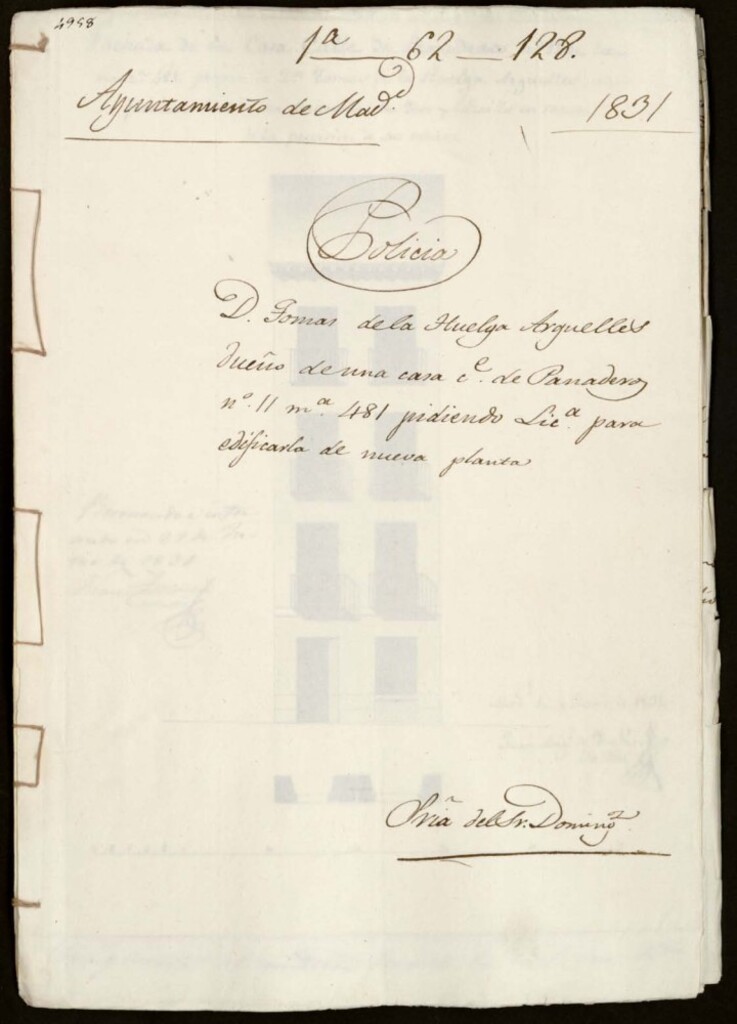 4958
1ª 62 128.
Ayuntamiento de Mad.d
1831
Policia
D. Tomas de la Huelga Arguelles
dueño de una casa c.e de Panaderos
nº. 11 m.a 481 pidiendo Lic.a para
edificarla de nueva planta
Sria del Sr. Doming.z